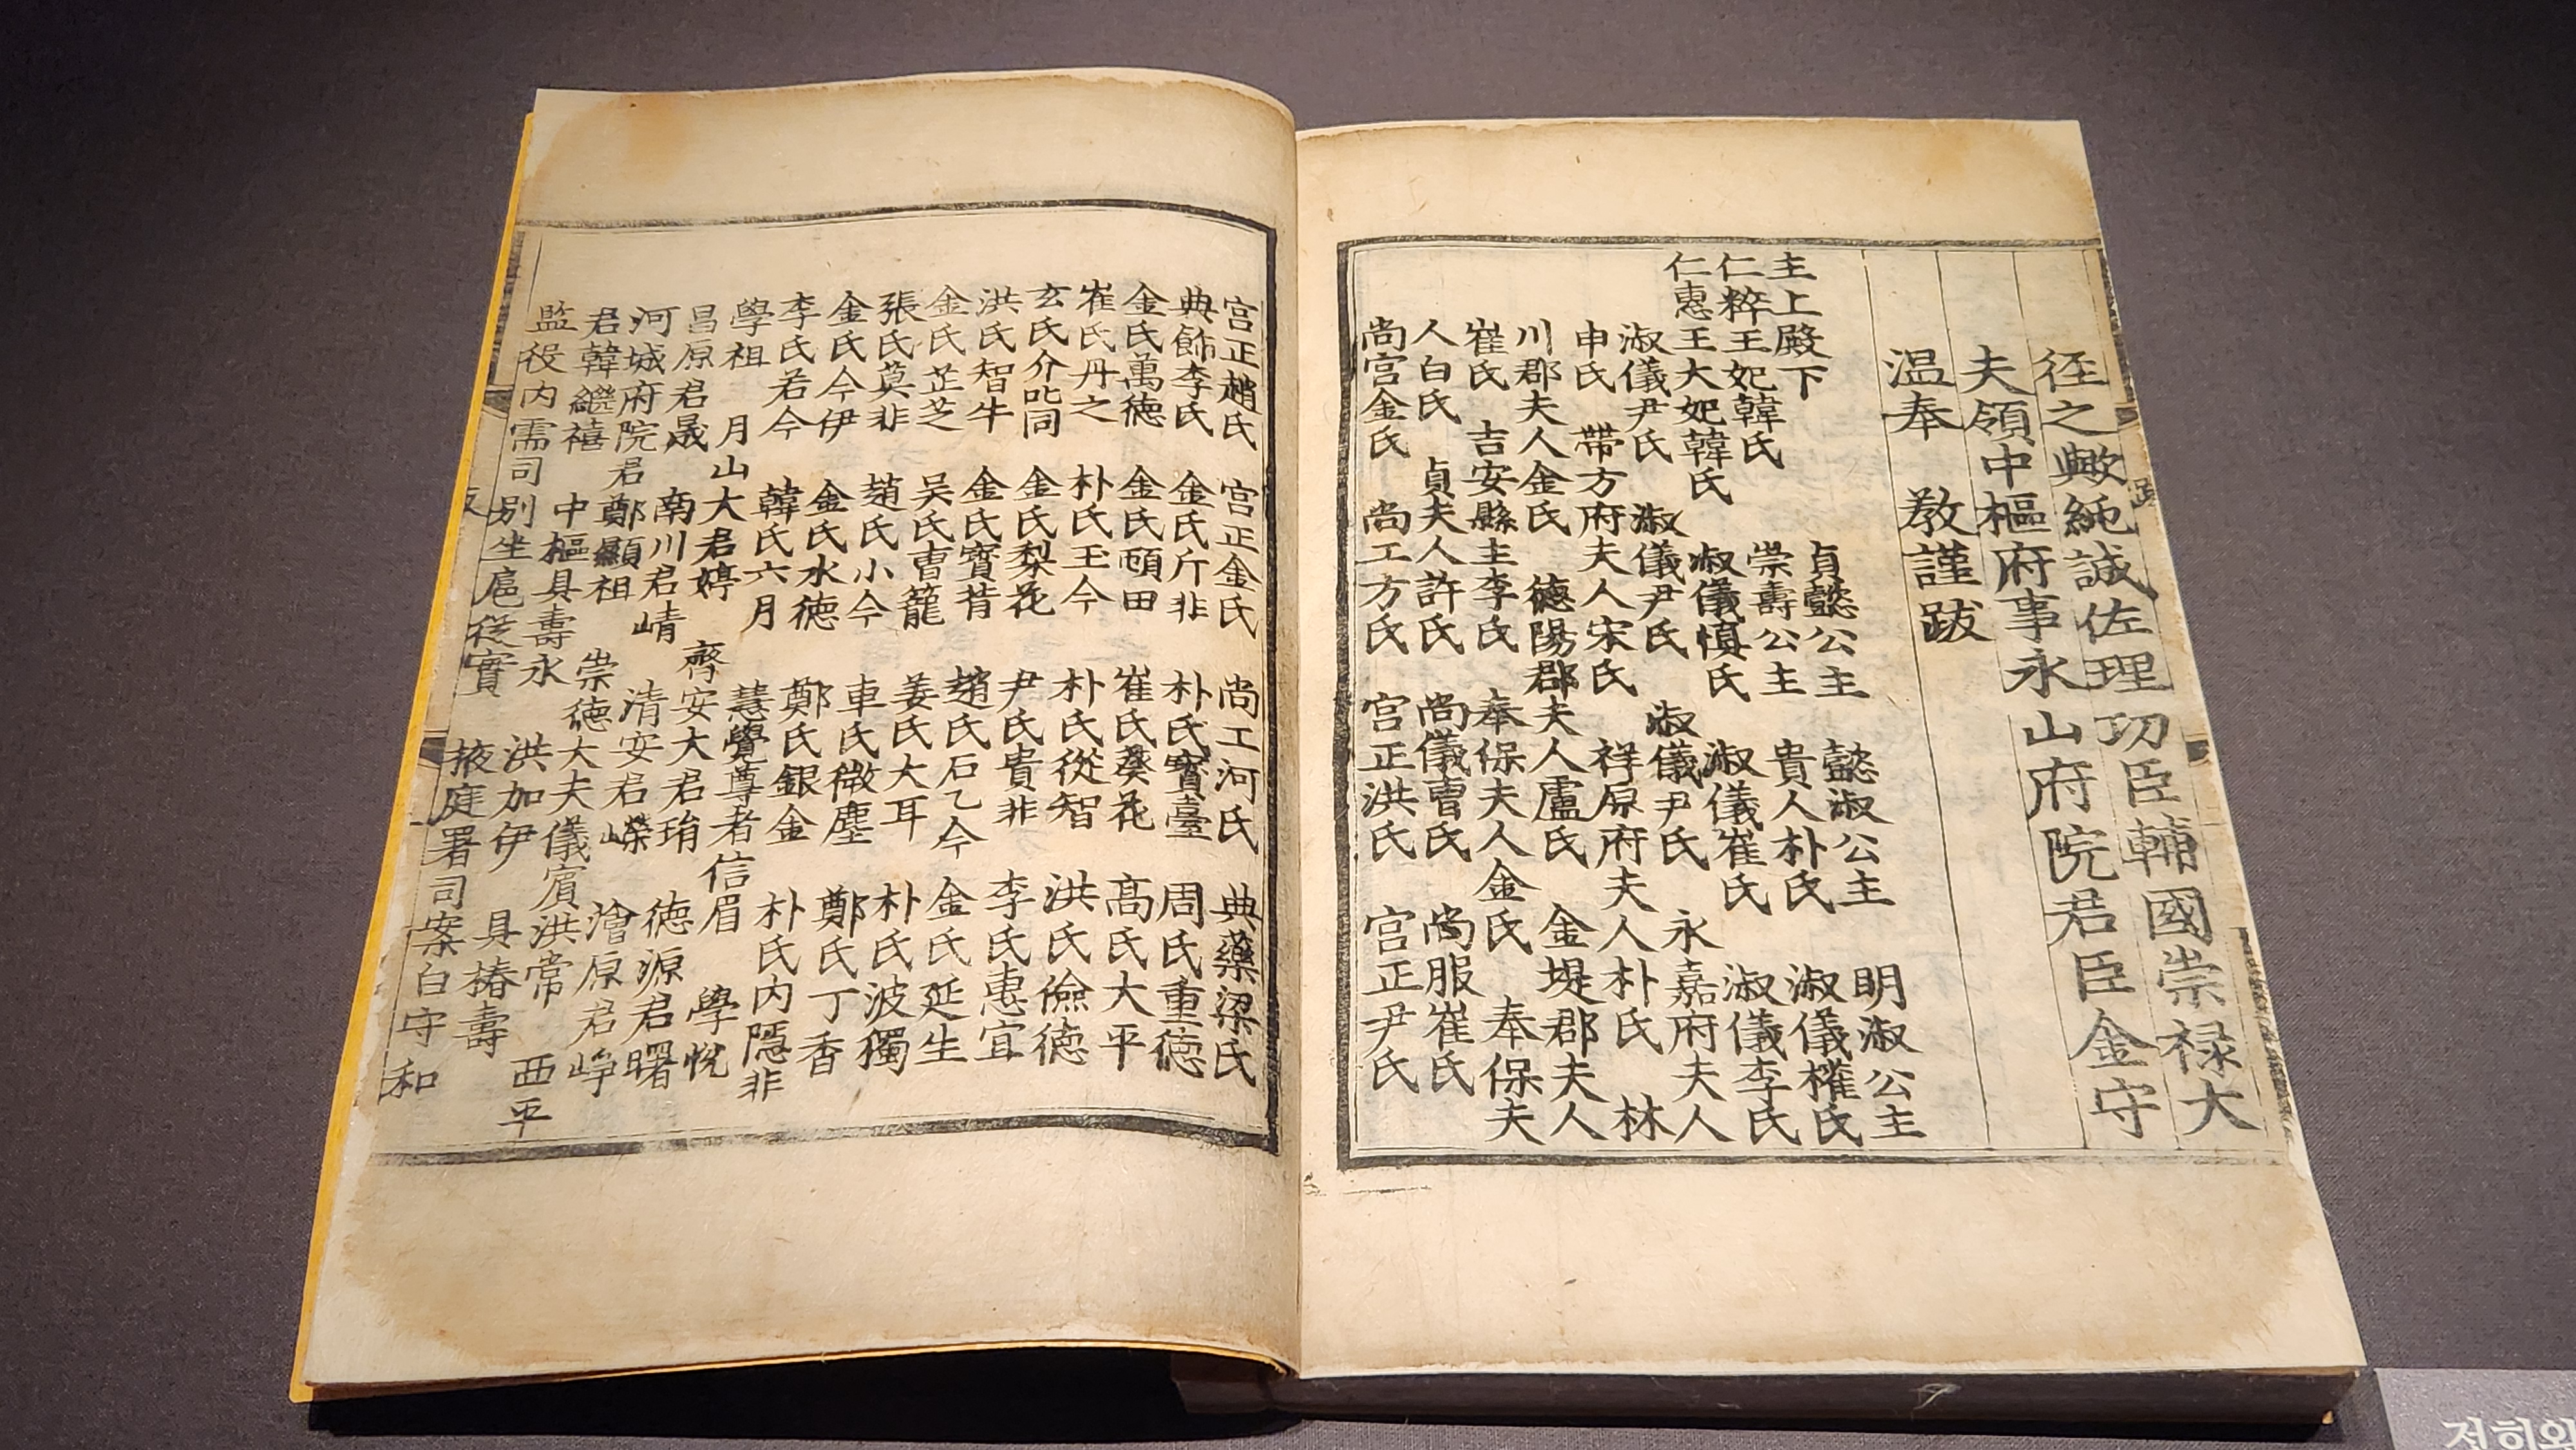 径之歟純誠佐理功臣輔國崇禄大
夫領中樞府事永山府院君臣金守
温奉 教謹跋
主上殿下 貞懿公主 懿淑公主 明淑公主
仁粹王妃韓氏 崇壽公主 貴人朴氏 淑儀權氏
仁惠王大妃韓氏 淑儀慎氏 淑儀崔氏 淑儀李氏
淑儀尹氏 淑儀尹氏 淑儀尹氏 永嘉府夫人
申氏 帶方府夫人宋氏 祥原府夫人朴氏 林
川郡夫人金氏 德陽郡夫人盧氏 金堤郡夫人
崔氏 吉安縣主李氏 奉保夫人金氏 奉保夫
人白氏 貞夫人許氏 尚儀曺氏 尚服崔氏
尚宫金氏 尚工方氏 宫正洪氏 宫正尹氏
宫正趙氏 宫正金氏 尚工河氏 典藥梁氏
典飾李氏 金氏斤非 朴氏寶臺 周氏重德
金氏萬德 金氏頤田 崔氏葵花 高氏大平
崔氏丹之 朴氏玉今 朴氏從智 洪氏儉德
玄氏介叱同 金氏梨花 尹氏貴非 李氏惠宜
洪氏智牛 金氏寶背 趙氏石乙今 金氏延生
金氏芷芝 吴氏曺籠 姜氏大耳 朴氏波獨
張氏莫非 趙氏小今 車氏微塵 鄭氏丁香
金氏今伊 金氏水德 鄭氏銀金 朴氏内隱非
李氏若今 韓氏六月 慧覺尊者信眉 學悅
學祖 月山大君婷 齊安大君琄 德源君曙
昌原君晟 南川君崝 清安君嶸 澮原君崢
河城府院君鄭顯祖 崇德大夫儀賓洪常 西平
君韓繼禧 中樞具壽永 洪加伊 具椿壽
監役内需司別坐扈從實 掖庭署司案白守和